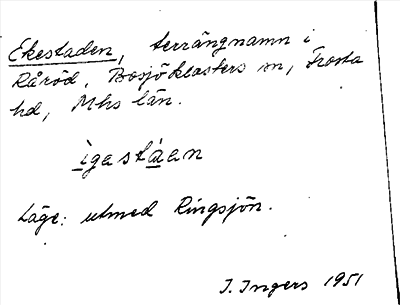 Ekestaden, terrängnamn i
Råröd, Bosjöklosters sn, Frosta
hd, Mhs län.
ìgastàan
Läge: utmed Ringsjön.
I. Ingers 1951